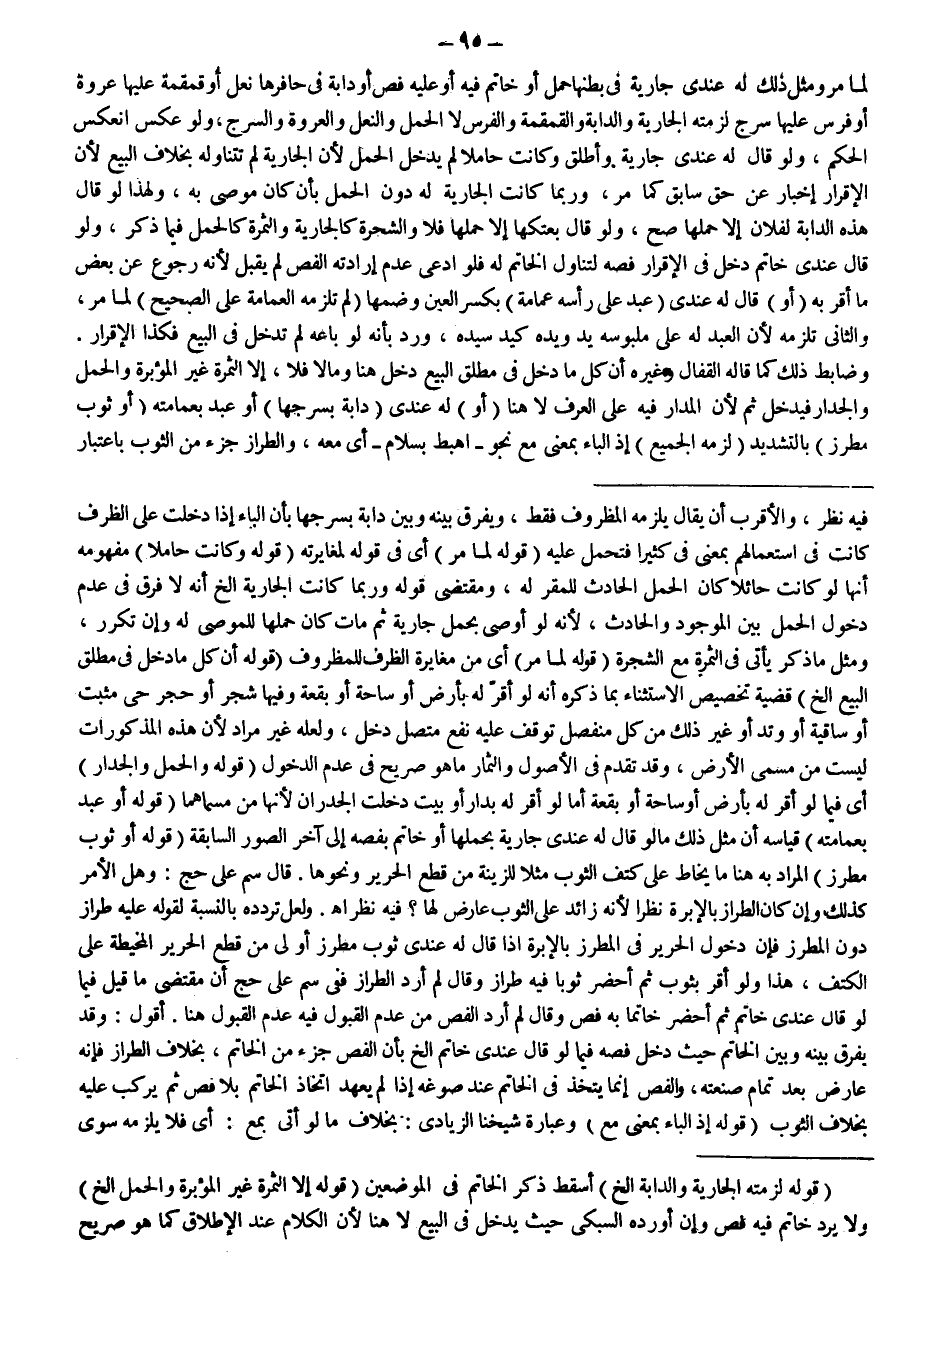 – ٩٥ –
لما مر ومثل ذلك له عندى جارية فى بطنها حمل أو خاتم فيه أو عليه فص أو دابة فى حافرها نعل أو قمقمة عليها عروة
أو فرس عليها سرج لزمته الجارية والدابة والقمقمة والفرس لا الحمل والنعل والعروة والسرج ، ولو عكس انعكس
الحكم ، ولو قال له عندى جارية وأطلق وكانت حاملا لم يدخل الحمل لأن الجارية لم تتناوله بخلاف البيع لأن
الإقرار إخبار عن حق سابق كما مر ، وربما كانت الجارية له دون الحمل بأن كان موصى به ، ولهذا لو قال
هذه الدابة لفلان إلا حملها صح ، ولو قال بعتكها إلا حملها فلا والشجرة كالجارية والثمرة كالحمل فيما ذكر ، ولو
قال عندى خاتم دخل فى الإقرار فصه لتناول الخاتم له فلو ادعى عدم إرادته الفص لم يقبل لأنه رجوع عن بعض
ما أقر به ( أو ) قال له عندى ( عبد على رأسه عمامة ) بكسر العين وضمها ( لم تلزمه العمامة على الصحيح ) لما مر ،
والثانى تلزمه لأن العبد له على ملبوسه يد ويده كيد سيده ، ورد بأنه لو باعه لم تدخل فى البيع فكذا الإقرار .
وضابط ذلك كما قاله القفال وغيره أن كل ما دخل فى مطلق البيع دخل هنا ومالا فلا ، إلا الثمرة غير المؤبرة والحمل
والجدار فيدخل ثم لأن المدار فيه على العرف لا هنا ( أو ) له عندى ( دابة بسرجها ) أو عبد بعمامته ( أو ثوب
مطرز ) بالتشديد ( لزمه الجميع ) إذ الباء بمعنى مع نحو ـ اهبط بسلام ـ أى معه ، والطراز جزء من الثوب باعتبار
فيه نظر ، والأقرب أن يقال يلزمه المظروف فقط ، ويفرق بينه وبين دابة بسرجها بأن الباء إذا دخلت على الظرف
كانت فى استعمالهم بمعنى فى كثيرا فتحمل عليه ( قوله لما مر ) أى فى قوله لمغايرته ( قوله وكانت حاملا ) مفهومه
أنها لو كانت حائلا كان الحمل الحادث للمقر له ، ومقتضى قوله وربما كانت الجارية الخ أنه لا فرق فى عدم
دخول الحمل بين الموجود والحادث ، لأنه لو أوصى بحمل جارية ثم مات كان حملها للموصى له وإن تكرر ،
ومثل ماذكر يأتى فى الثمرة مع الشجرة ( قوله لما مر ) أى من مغايرة الظرف للمظروف ( قوله أن كل مادخل فى مطلق
البيع الخ ) قضية تخصيص الاستثناء بما ذكره أنه لو أقرّ له بأرض أو ساحة أو بقعة وفيها شجر أو حجر حى مثبت
أو ساقية أو وتد أو غير ذلك من كل منفصل توقف عليه نفع متصل دخل ، ولعله غير مراد لأن هذه المذكورات
ليست من مسمى الأرض ، وقد تقدم فى الأصول والثمار ماهو صريح فى عدم الدخول ( قوله والحمل والجدار )
أى فيما لو أقر له بأرض أو ساحة أو بقعة أما لو أقر له بدار أو بيت دخلت الجدران لأنها من مسماهما ( قوله أو عبد
بعمامته ) قياسه أن مثل ذلك مالو قال له عندى جارية بحملها أو خاتم بفصه إلى آخر الصور السابقة ( قوله أو ثوب
مطرز ) المراد به هنا ما يخاط على كتف الثوب مثلا للزينة من قطع الحرير ونحوها . قال سم على حج : وهل الأمر
كذلك وإن كان الطراز بالإبرة نظرا لأنه زائد على الثوب عارض لها ؟ فيه نظر اه . ولعل تردده بالنسبة لقوله عليه طراز
دون المطرز فإن دخول الحرير فى المطرز بالإبرة اذا قال له عندى ثوب مطرز أولى من قطع الحرير المخيطة على
الكتف ، هذا ولو أقر بثوب ثم أحضر ثوبا فيه طراز وقال لم أرد الطراز فنى سم على حج أن مقتضى ما قيل فيما
لو قال عندى خاتم ثم أحضر خاتما به فص وقال لم أرد الفص من عدم القبول فيه عدم القبول هنا . أقول : وقد
يفرق بينه وبين الخاتم حيث دخل فصه فيما لو قال عندى خاتم الخ بأن الفص جزء من الخاتم ، بخلاف الطراز فإنه
عارض بعد تمام صنعته ، والفص إنما يتخذ فى الخاتم عند صوغه إذا لم يعهد اتخاذ الخاتم بلا فص ثم يركب عليه
بخلاف الثوب ( قوله إذ الباء بمعنى مع ) وعبارة شيخنا الزيادى : بخلاف ما لو أتى بمع : أى فلا يلزمه سوى
( قوله لزمته الجارية والدابة الخ ) أسقط ذكر الخاتم فى الموضعين ( قوله إلا الثمرة غير المؤبرة والحمل الخ )
ولا يرد خاتم فيه فص وإن أورده السبكى حيث يدخل فى البيع لا هنا لأن الكلام عند الإطلاق كما هو صريح